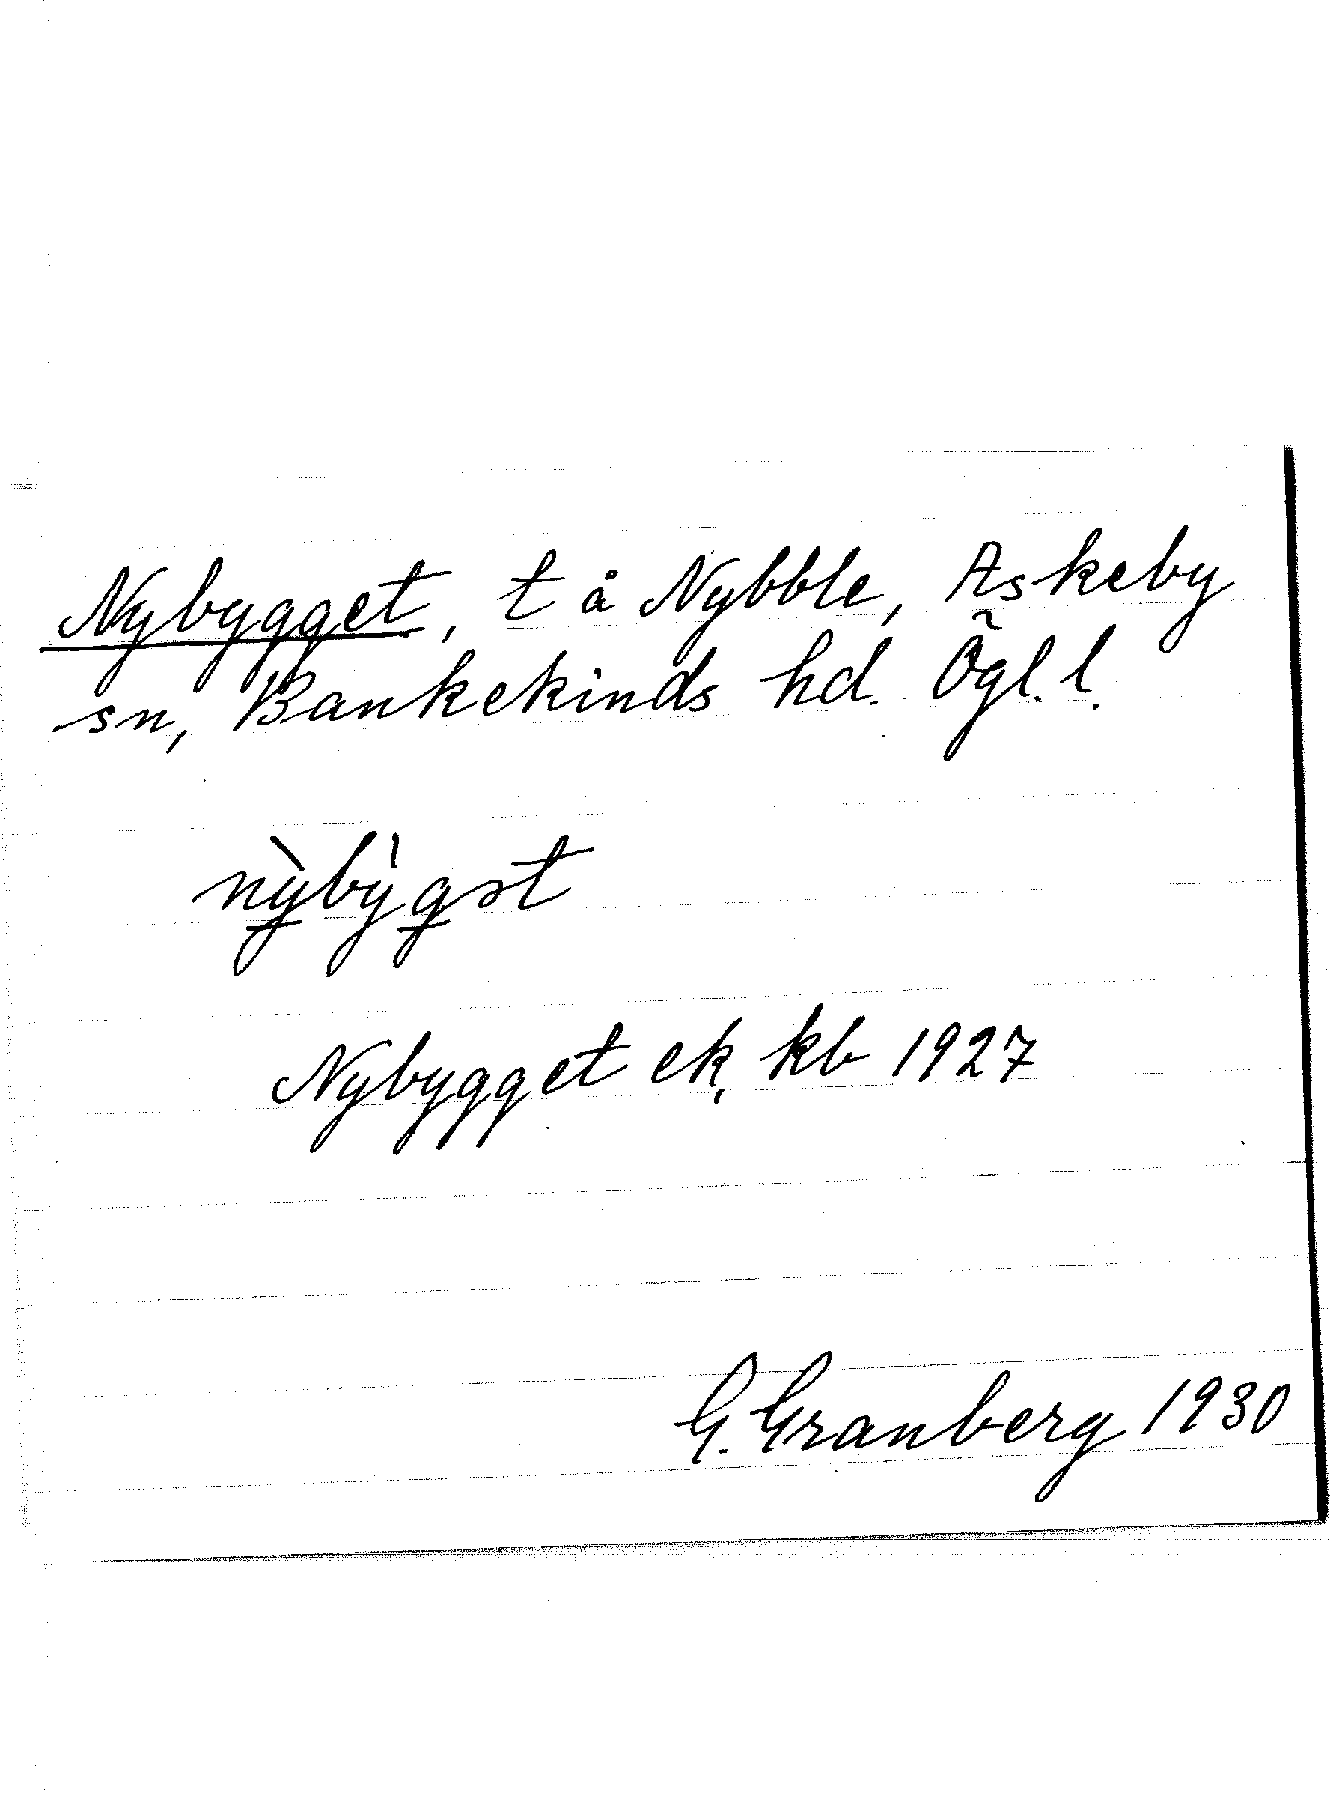 Nybygget, t å Nybble, Askeby
sn, Bankekinds hd. Ögl. l.
nỳbỳgət
Nybygget ek, kb 1927
G. Granberg 1930